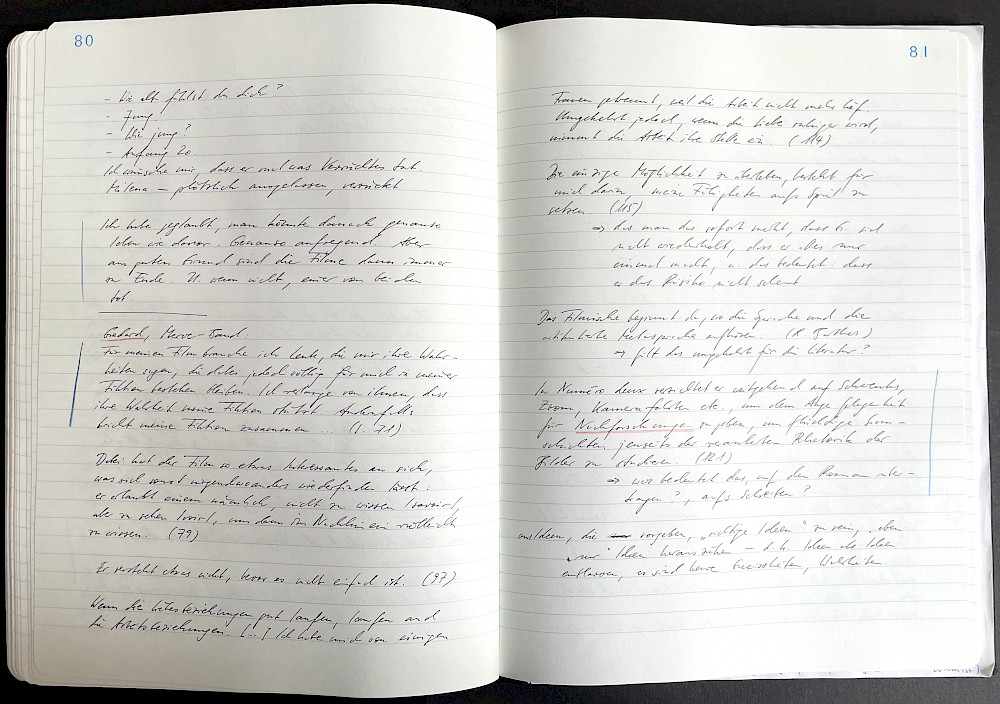 80
- Wie alt fühlst du dich?
- Jung
- Wie jung?
- Anfang 20
Ich wünsche mir, dass er mal was Verrücktes tut.
– plötzlich ausgelassen, verrückt
Ich habe geglaubt, man könnte danach genauso
leben wie davor. Genauso aufregend. Aber
aus gutem Grund sind die Filme dann immer
zu Ende. U. wenn nicht, einer von beiden
tot.
Godard, Merve-Band:
Für meinen Film brauche ich Leute, die mir ihre Wahr-
heiten sagen, die dabei jedoch völlig für mich in meiner
Fiktion bestehen bleiben. Ich verlange von ihnen, dass
ihre Wahrheit meine Fiktion stützt. Andernfalls
bricht meine Fiktion zusammen ... (S. 71)
Dabei hat der Film so etwas Interessantes an sich,
was sich sonst nirgendwo anders wiederfinden lässt:
er erlaubt einem nämlich, nicht zu wissen
aber zu sehen, um dann im Nachhinein vielleicht
zu wissen. (79)
Er versteht etwas nicht, bevor es nicht einfach ist. (97)
Wenn die Liebesbeziehungen gut laufen, laufen auch
die Arbeitsbeziehungen. [...] Ich habe mich von einigen
81
Frauen getrennt, weil die Arbeit nicht mehr lief.
Umgekehrt jedoch, wenn die Liebe ruhiger wird,
nimmt die Arbeit ihre Stelle ein. (114)
Die einzige Möglichkeit zu überleben, besteht für
mich darin, meine Fähigkeiten aufs Spiel zu
setzen. (115)
⇒ das man das sofort sieht, dass er sich
nicht wiederholt, dass er alles nur
einmal macht, u. das bedeutet: dass
er das Risiko nicht scheut
Das Filmische beginnt da, wo die Sprache und die
Metasprache aufhören. (R. Barthes)
→ gilt das umgekehrt für die Literatur?
In Numéro deux verzichtet er weitgehend auf Schwenks,
Zoom, Kamerafahrten etc., um dem Auge Gelegenheit
für Nachforschungen zu geben, um flüchtige Sinn-
schichten jenseits der Rhetorik der
Bilder zu studieren. (121)
⇒ was bedeutet das, auf den Roman über-
tragen?, aufs Schreiben?
aus Ideen, die vorgeben, „richtige Ideen“ zu sein, eben
„nur“ Ideen herausziehen – d.h. Ideen als Ideen